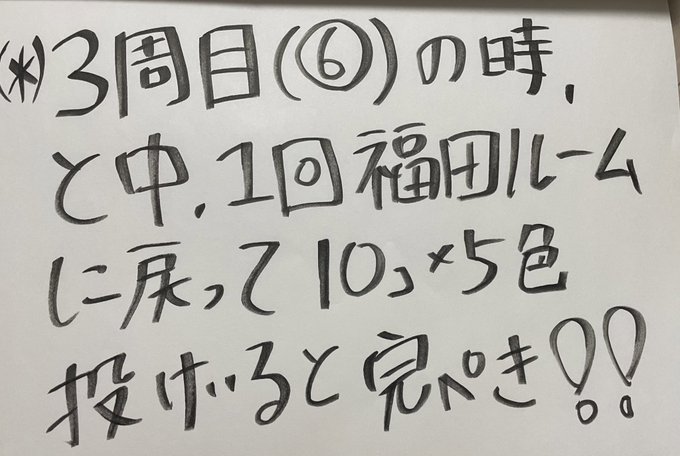 (*)3周目(⑥)の時,
と中,1回福田ルーム
に戻って10コ×5色
投げいると完ぺき!!